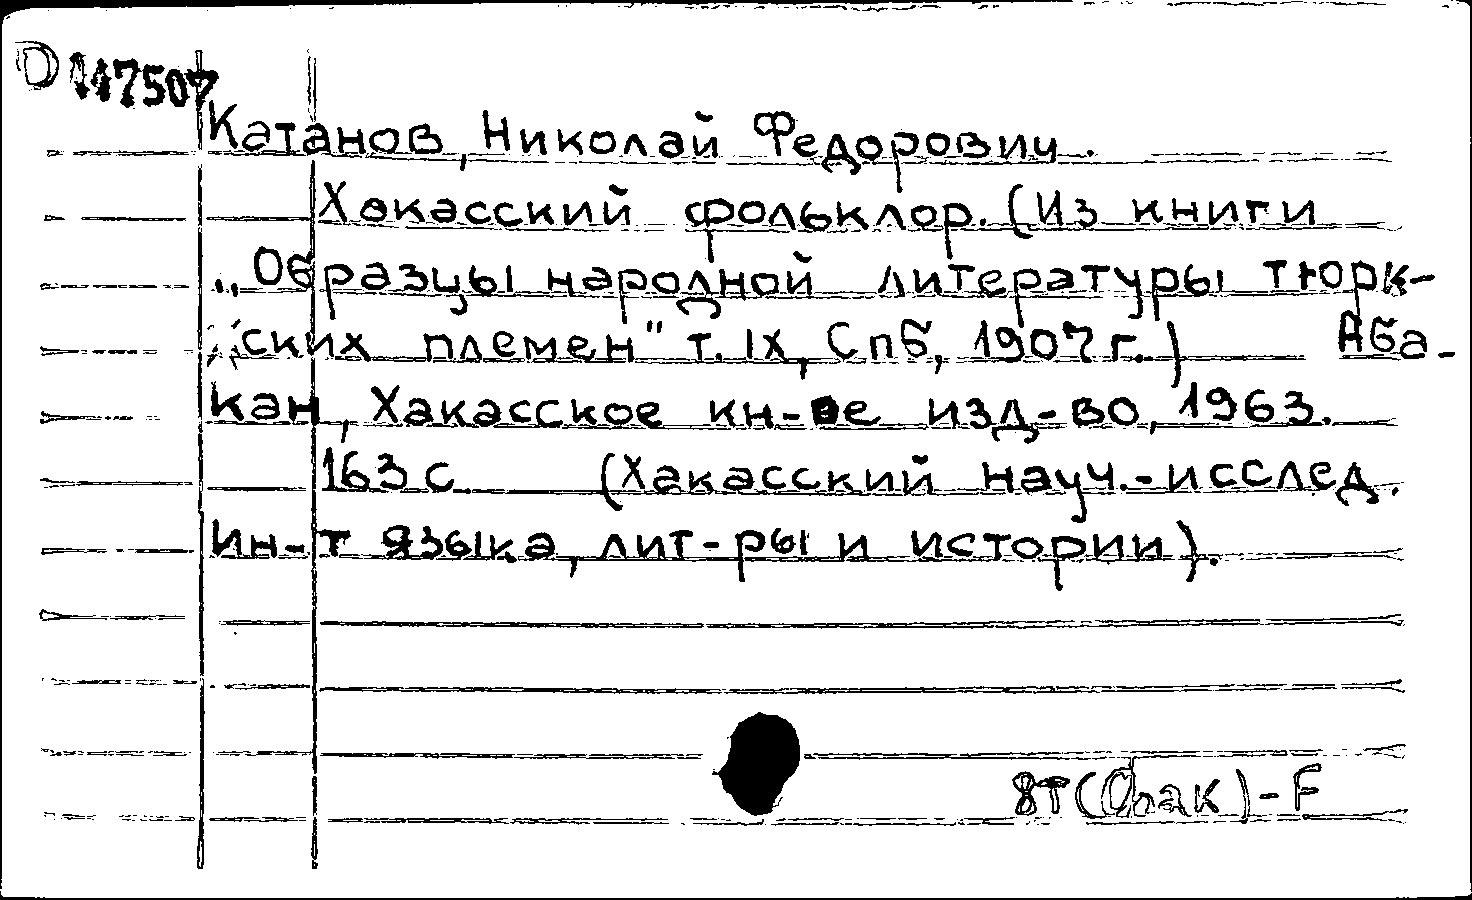 D 147507
Катанов, Николай Федорович.
Хакасский фольклор. (Из книги
„Образцы народной литературы тюрк-
ских племен" т. IX, Спб, 1907 г.) Аба-
кан, Хакасское кн-ое изд-во, 1963.
163 с (Хакасский науч.-исслед.
Ин-т языка, лит-ры и истории).
8Т( )-F